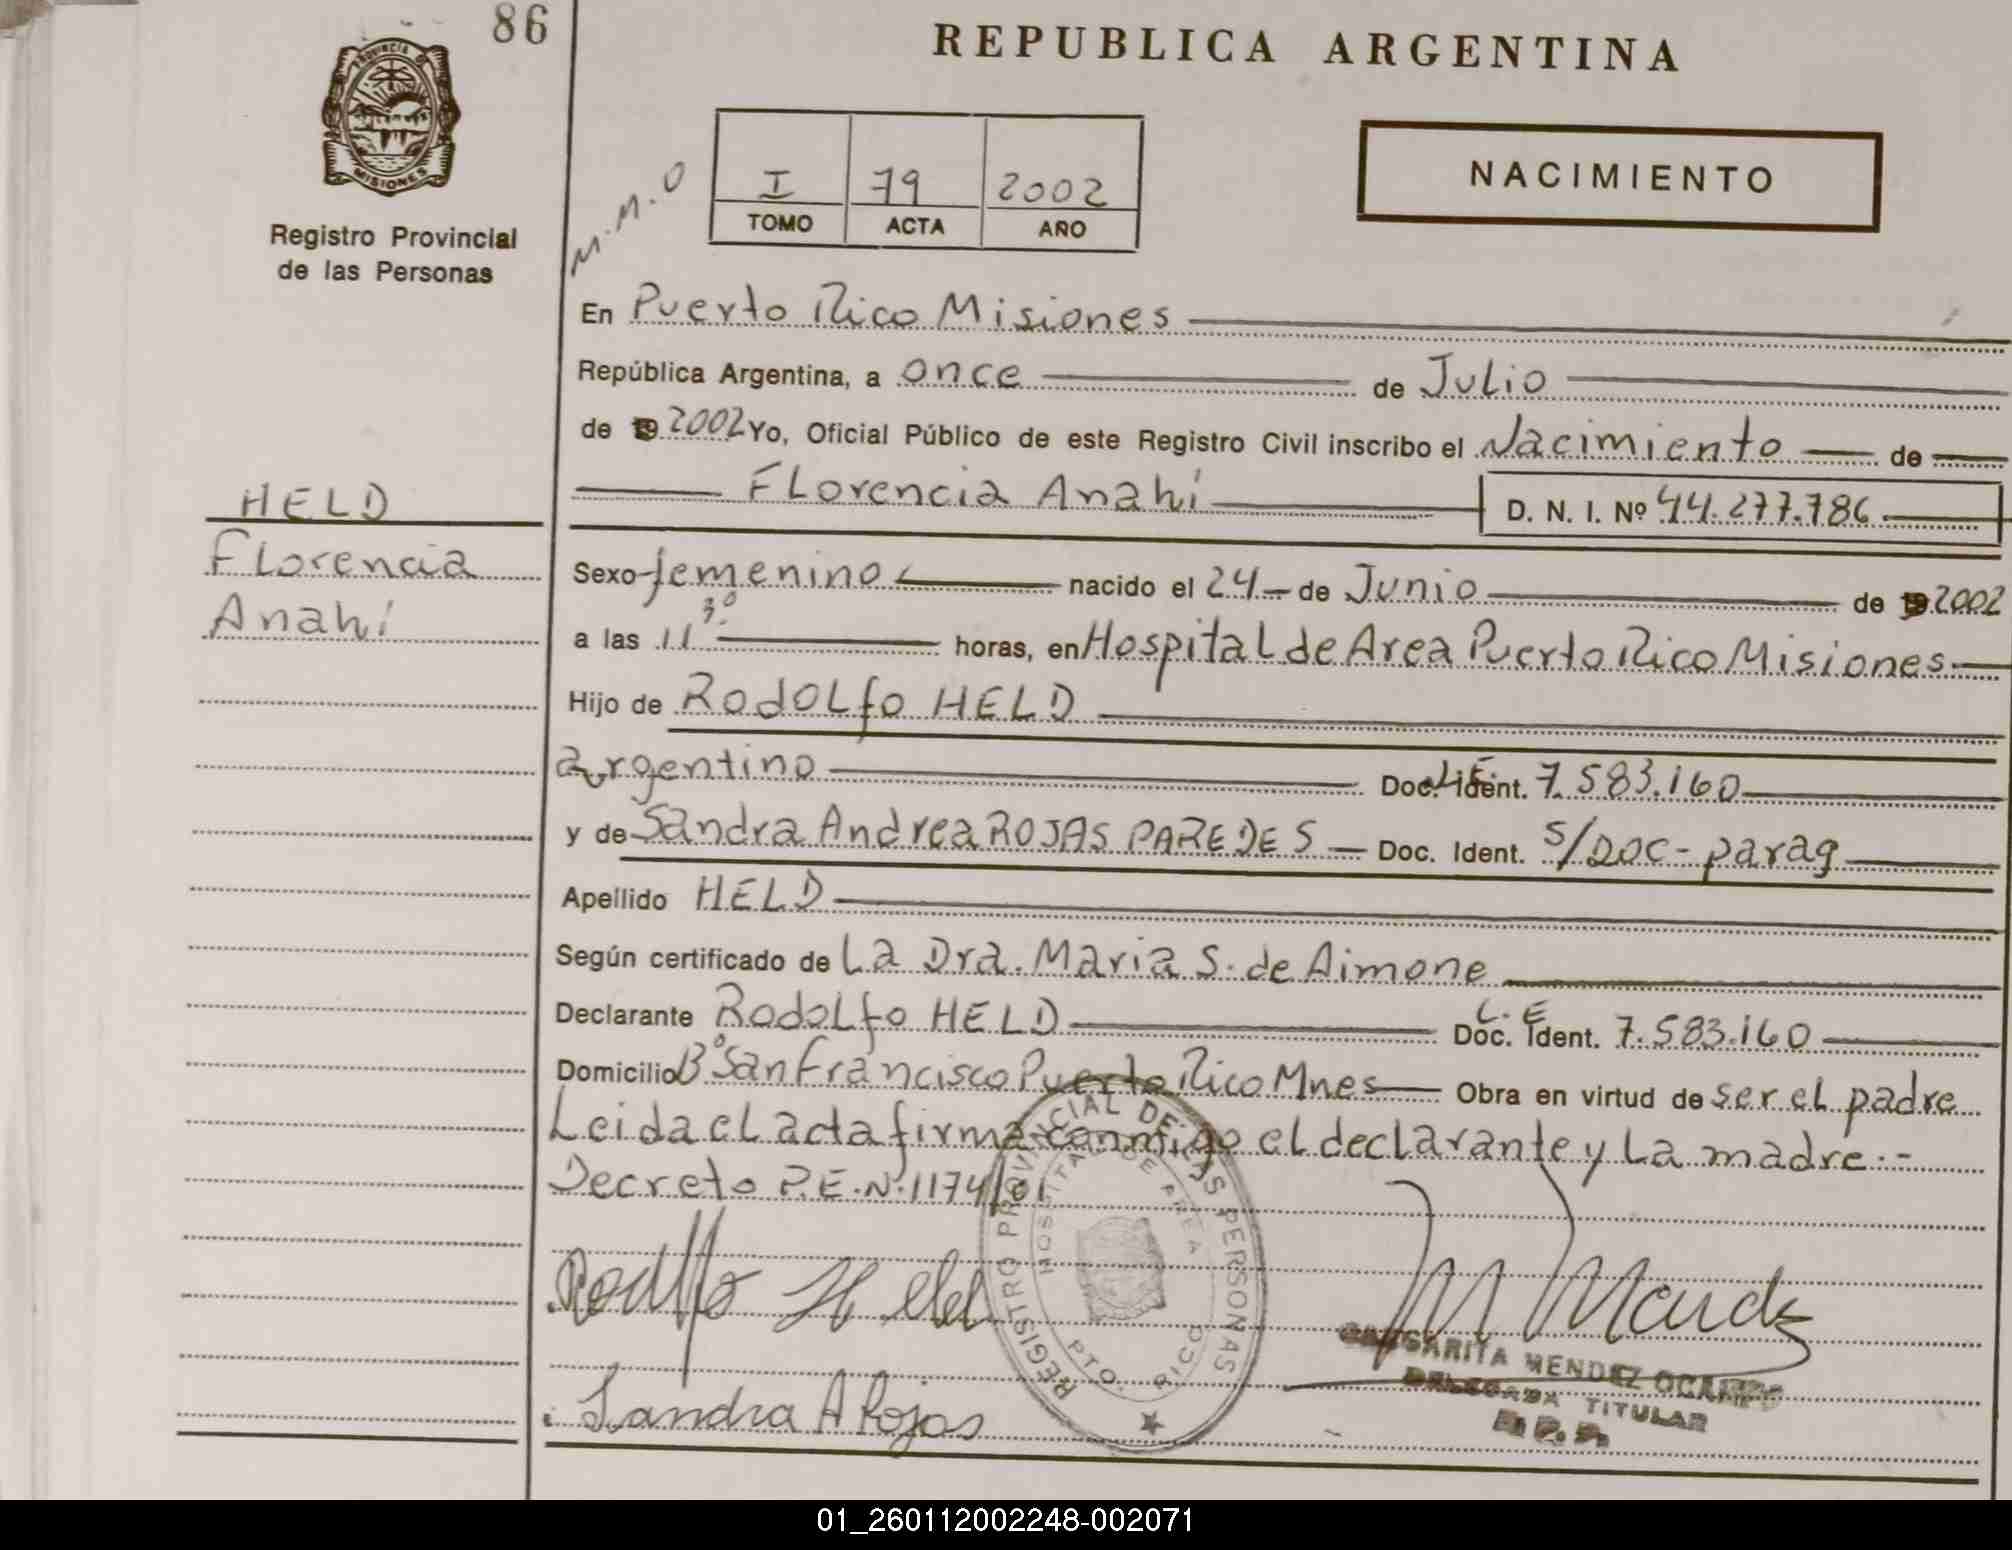 86
REPUBLICA ARGENTINA
PROVINCIA DE
MISIONES
Registro Provincial
de las Personas
M.M.O
I 79 2002
TOMO ACTA AÑO
NACIMIENTO
En Puerto Rico Misiones
República Argentina, a once de Julio
de 19 2002 Yo, Oficial Público de este Registro Civil inscribo el Nacimiento de
Florencia Anahí D. N. I. Nº 44.277.786
HELD
Florencia
Anahí
Sexo femenino nacido el 24 de Junio de 19 2002
a las 11 30 horas, en Hospital de Area Puerto Rico Misiones
Hijo de Rodolfo HELD
argentino Doc. Ident. L.E. 7.583.160
y de Sandra Andrea ROJAS PAREDES Doc. Ident. S/DOC - parag
Apellido HELD
Según certificado de La Dra. Maria S. de Aimone
Declarante Rodolfo HELD Doc. Ident. L.E 7.583.160
Domicilio Bº San Francisco Puerto Rico Mnes Obra en virtud de ser el padre
Leida el acta firma conmigo el declarante y La madre.-
Decreto P.E.Nº.1174/01
Rodolfo Held
M Mendez
Sandra A Rojas
REGISTRO PROVINCIAL DE LAS PERSONAS
HOSPITAL DE AREA
PTO. RICO
MARGARITA MENDEZ OCAMPO
DELEGADA TITULAR
R.P.P.
01_260112002248-002071